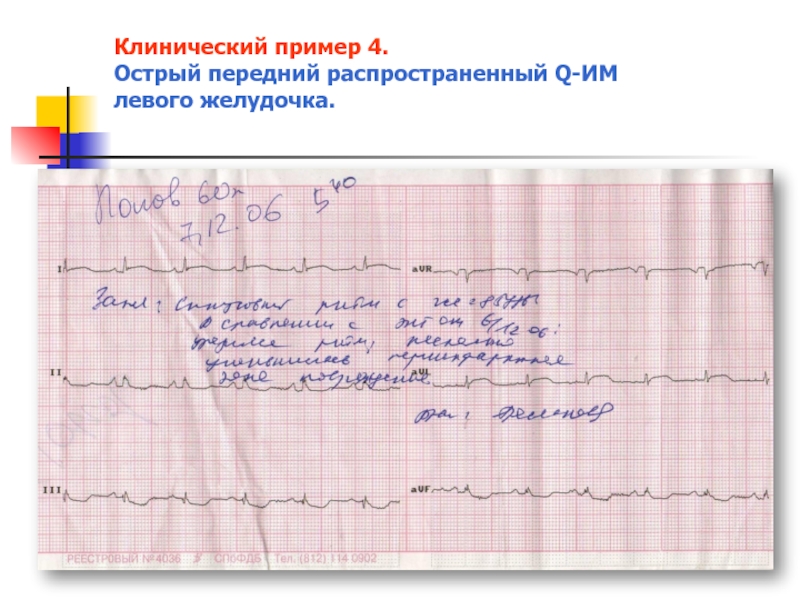 Клинический пример 4.
Острый передний распространенный Q-ИМ
левого желудочка.
Попов 60л
7,12.06 5 40
I
aVR
Закл: Синусовый ритм с
В сравнении с ЭКГ от 6/12 06:
ритм, несколько
уменьшилась
зона повреждения.
II
aVL
III
aVF
РЕЕСТРОВЫЙ №4036 СПбФДБ Тел. (812) 114 0902